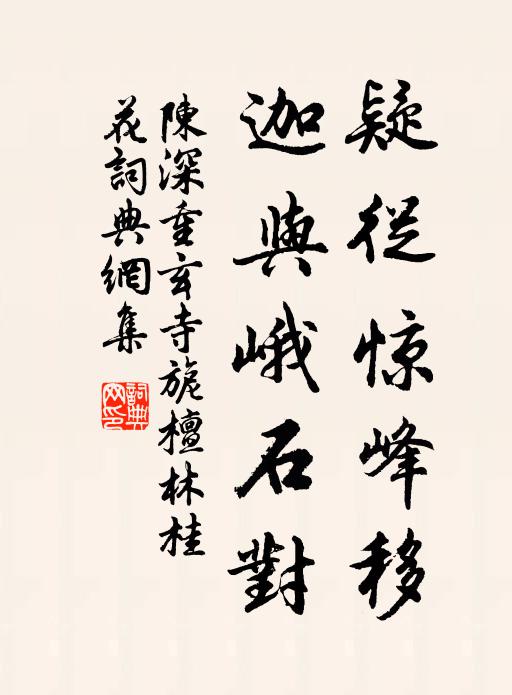 疑從惊峰移
迦與峨石對
陳深重玄寺旎檀林桂
花詞典網集
詞典
网印